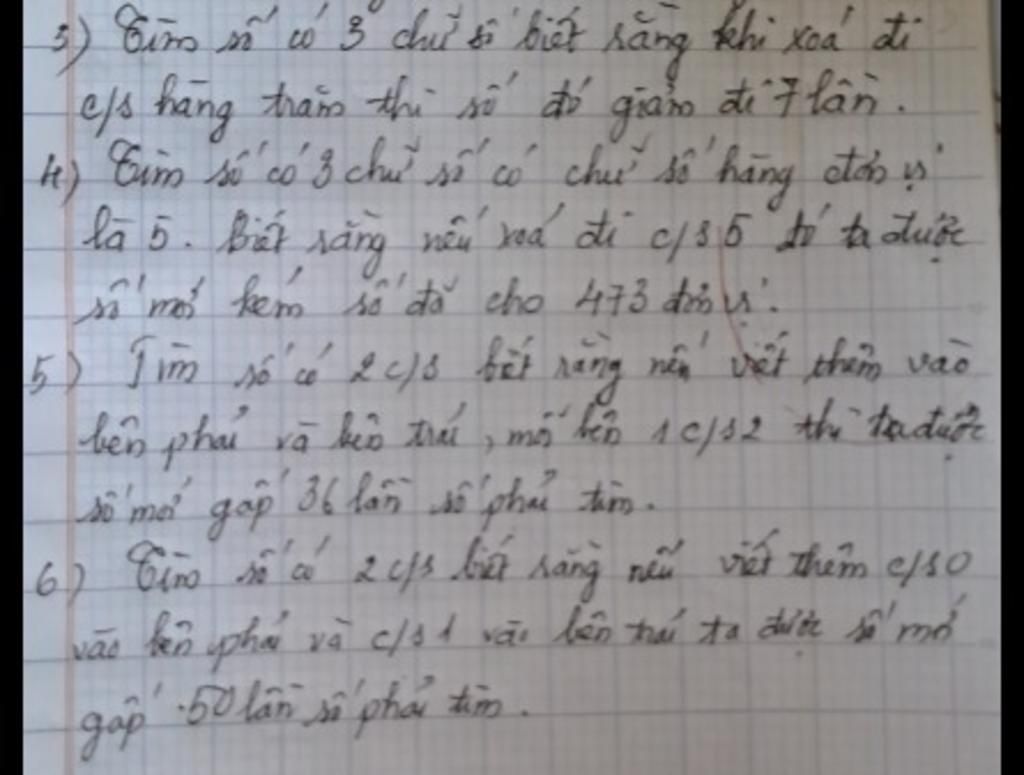 3) Tìm số có 3 chữ số biết rằng khi xoá đi
c/s hàng trăm thì số đó giảm đi 7 lần.
4) Tìm số có 3 chữ số có chữ số hàng đơn vị
là 5. Biết rằng nếu xoá đi c/s 5 đó ta được
số mới kém số đã cho 473 đơn vị.
5) Tìm số có 2 c/s biết rằng nếu viết thêm vào
bên phải và bên trái, mỗi bên 1 c/s 2 thì ta được
số mới gấp 36 lần số phải tìm.
6) Tìm số có 2 c/s biết rằng nếu viết thêm c/s 0
vào bên phải và c/s 1 vào bên trái ta được số mới
gấp 50 lần số phải tìm.